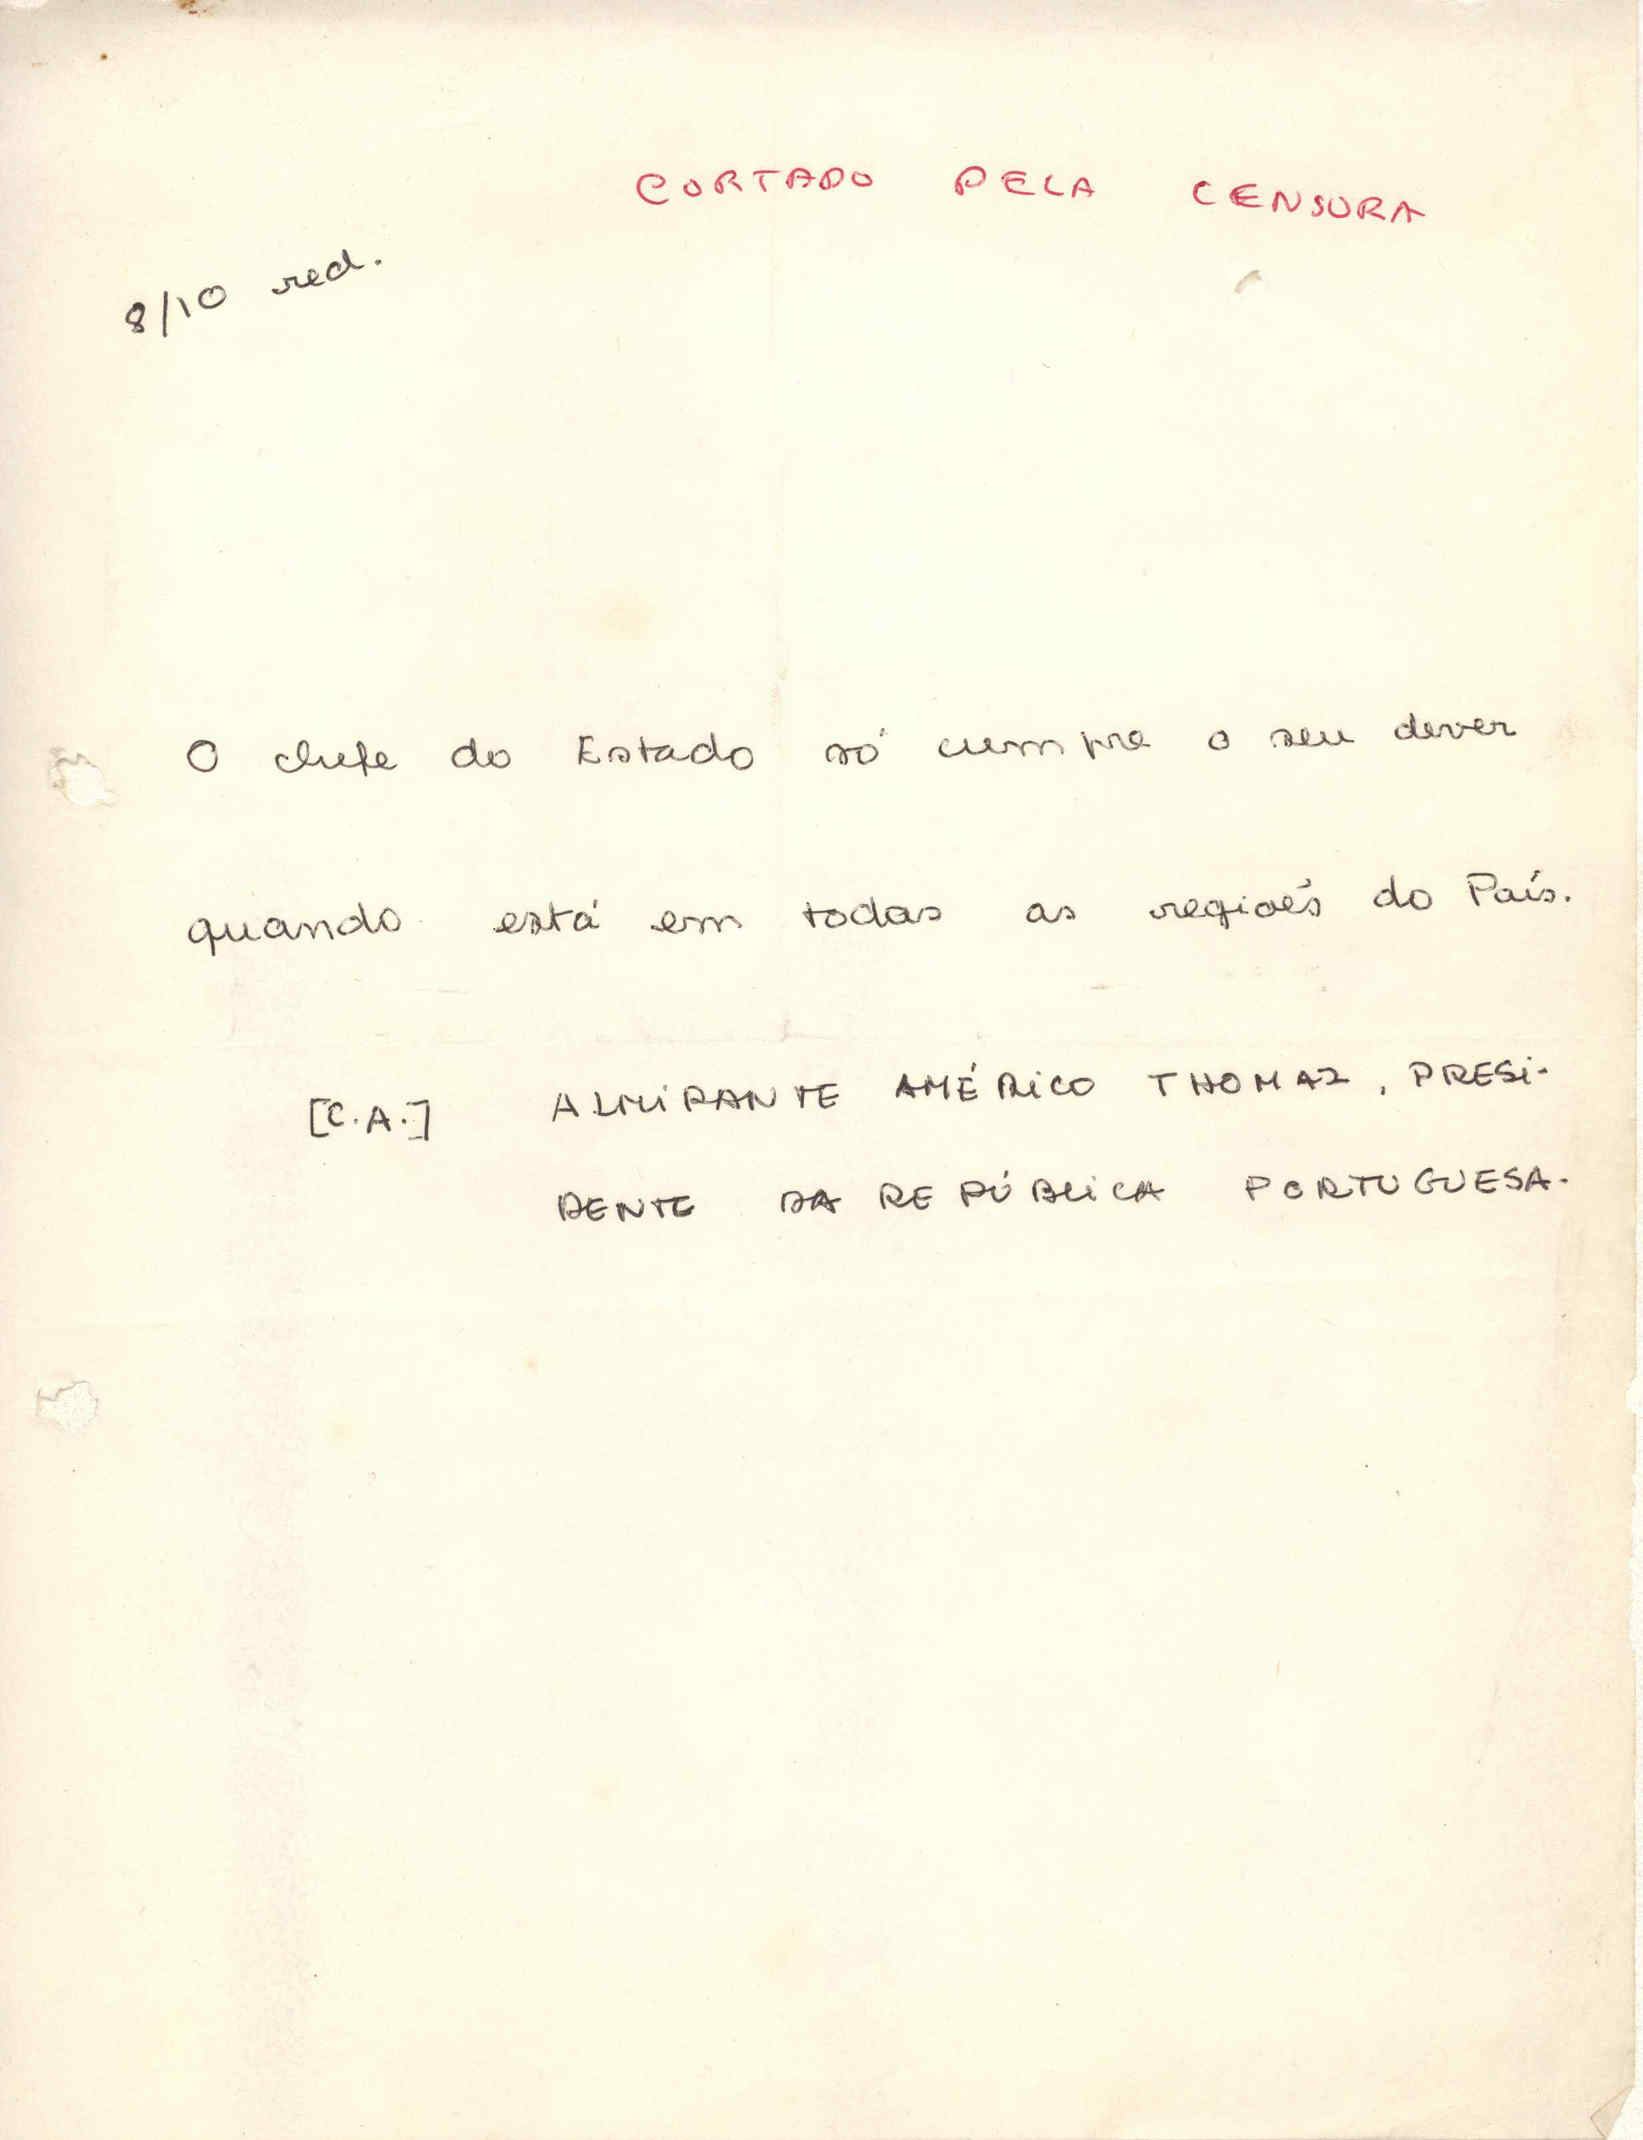 CORTADO PELA CENSURA
8/10 red.
O chefe do Estado só cumpre o seu dever
quando está em todas as regiões do País.
[C.A.] ALMIRANTE AMÉRICO THOMAZ, PRESI-
DENTE DA REPÚBLICA PORTUGUESA.